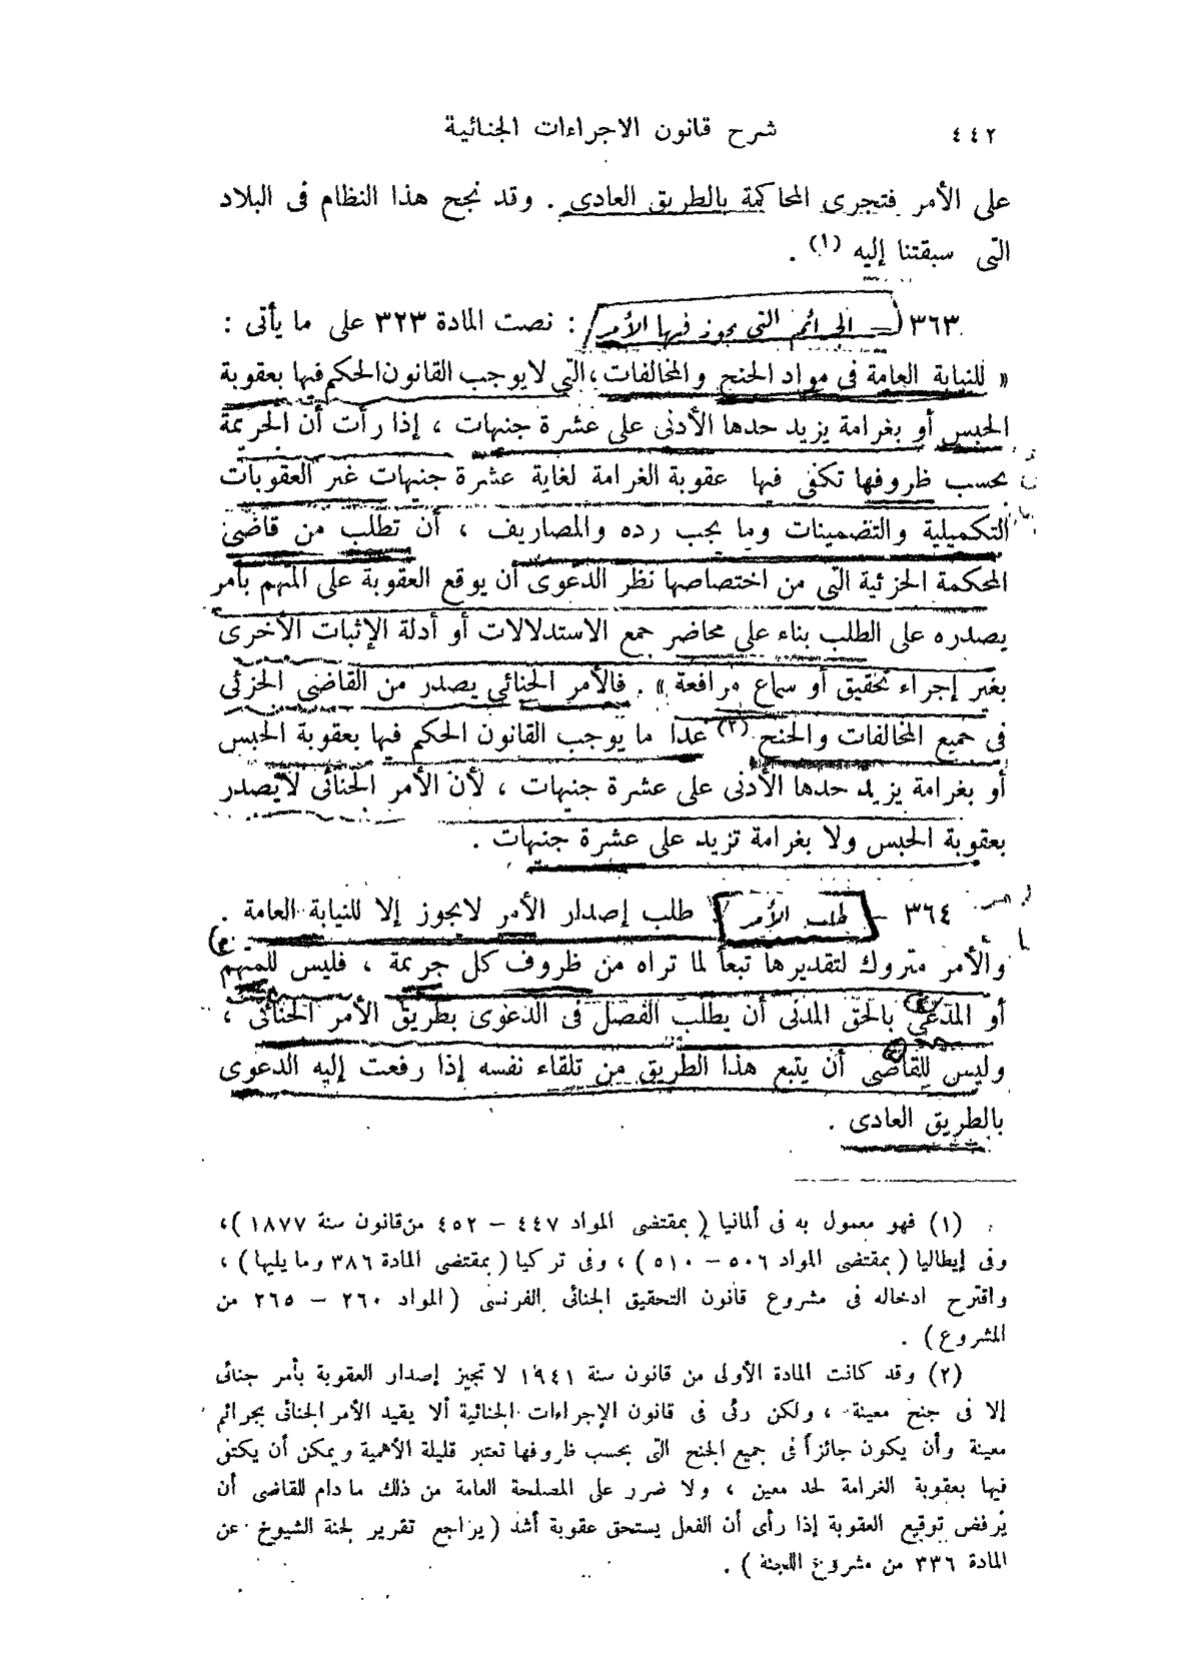 ٤٤٢
شرح قانون الاجراءات الجنائية
على الأمر فتجرى المحاكمة بالطريق العادى . وقد نجح هذا النظام فى البلاد
التى سبقتنا إليه (١) .
٣٦٣ — الجرائم التى يجوز فيها الأمر : نصت المادة ٣٢٣ على ما يأتى :
« للنيابة العامة فى مواد الجنح والمخالفات ، التى لا يوجب القانون الحكم فيها بعقوبة
الحبس أو بغرامة يزيد حدها الأدنى على عشرة جنيهات ، إذا رأت أن الجريمة
بحسب ظروفها تكفى فيها عقوبة الغرامة لغاية عشرة جنيهات غير العقوبات
التكميلية والتضمينات وما يجب رده والمصاريف ، أن تطلب من قاضى
المحكمة الجزئية التى من اختصاصها نظر الدعوى أن يوقع العقوبة على المتهم بأمر
يصدره على الطلب بناء على محاضر جمع الاستدلالات أو أدلة الإثبات الأخرى
بغير إجراء تحقيق أو سماع مرافعة » . فالأمر الجنائي يصدر من القاضى الجزئى
فى جميع المخالفات والجنح (٢) عدا ما يوجب القانون الحكم فيها بعقوبة الحبس
أو بغرامة يزيد حدها الأدنى على عشرة جنيهات ، لأن الأمر الجنائى لا يصدر
بعقوبة الحبس ولا بغرامة تزيد على عشرة جنيهات .
٣٦٤ — طلب الأمر : طلب إصدار الأمر لا يجوز إلا للنيابة العامة .
والأمر متروك لتقديرها تبعاً لما تراه من ظروف كل جريمة ، فليس للمتهم
أو المدعي بالحق المدنى أن يطلب الفصل فى الدعوى بطريق الأمر الجنائى ،
وليس للقاضى أن يتبع هذا الطريق من تلقاء نفسه إذا رفعت إليه الدعوى
بالطريق العادى .
(١) فهو معمول به فى ألمانيا ( بمقتضى المواد ٤٤٧ – ٤٥٢ من قانون سنة ١٨٧٧ ) ،
وفى إيطاليا ( بمقتضى المواد ٥٠٦ – ٥١٠ ) ، وفى تركيا ( بمقتضى المادة ٣٨٦ وما يليها ) ،
واقترح ادخاله فى مشروع قانون التحقيق الجنائى الفرنسى ( المواد ٢٦٠ – ٢٦٥ من
المشروع ) .
(٢) وقد كانت المادة الأولى من قانون سنة ١٩٤١ لا تجيز إصدار العقوبة بأمر جنائى
إلا فى جنح معينة ، ولكن رئى فى قانون الإجراءات الجنائية ألا يقيد الأمر الجنائى بجرائم
معينة وأن يكون جائزاً فى جميع الجنح التى بحسب ظروفها تعتبر قليلة الأهمية ويمكن أن يكتفى
فيها بعقوبة الغرامة لحد معين ، ولا ضرر على المصلحة العامة من ذلك مادام للقاضى أن
يرفض توقيع العقوبة إذا رأى أن الفعل يستحق عقوبة أشد ( يراجع تقرير لجنة الشيوخ عن
المادة ٣٣٦ من مشروع اللجنة ) .